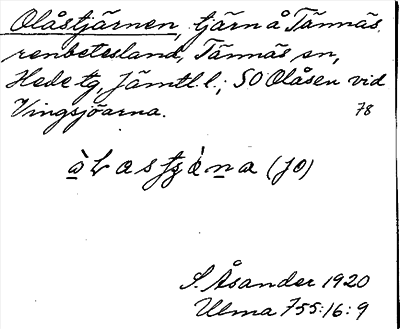 Olåstjärnen, tjärn å Tännäs
renbetesland, Tännäs sn,
Hede tg, Jämtl. l.; SO Olåsen vid
Vingsjöarna. 78
(jo)
S. Åsander 1920
Ulma 755:16:9